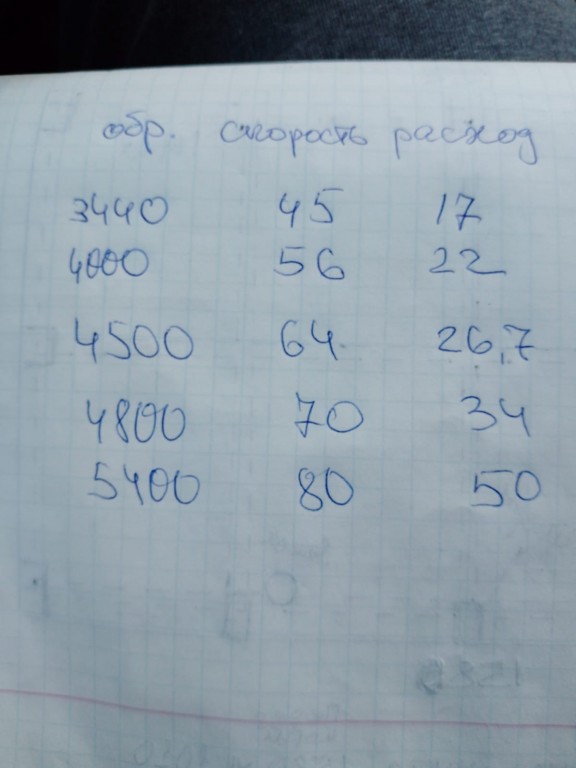 обр. скорость расход
3440 45 17
4000 56 22
4500 64 26,7
4800 70 34
5400 80 50